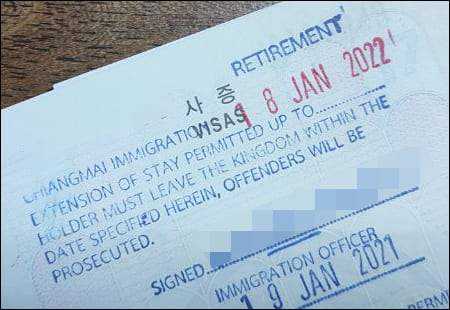 RETIREMENT
사 증
VISAS
18 JAN 2022
CHIANGMAI IMMIGRATION
EXTENSION OF STAY PERMITTED UP TO
HOLDER MUST LEAVE THE KINGDOM WITHIN THE
DATE SPECIFIED HEREIN, OFFENDERS WILL BE
PROSECUTED.
SIGNED
IMMIGRATION OFFICER
19 JAN 2021